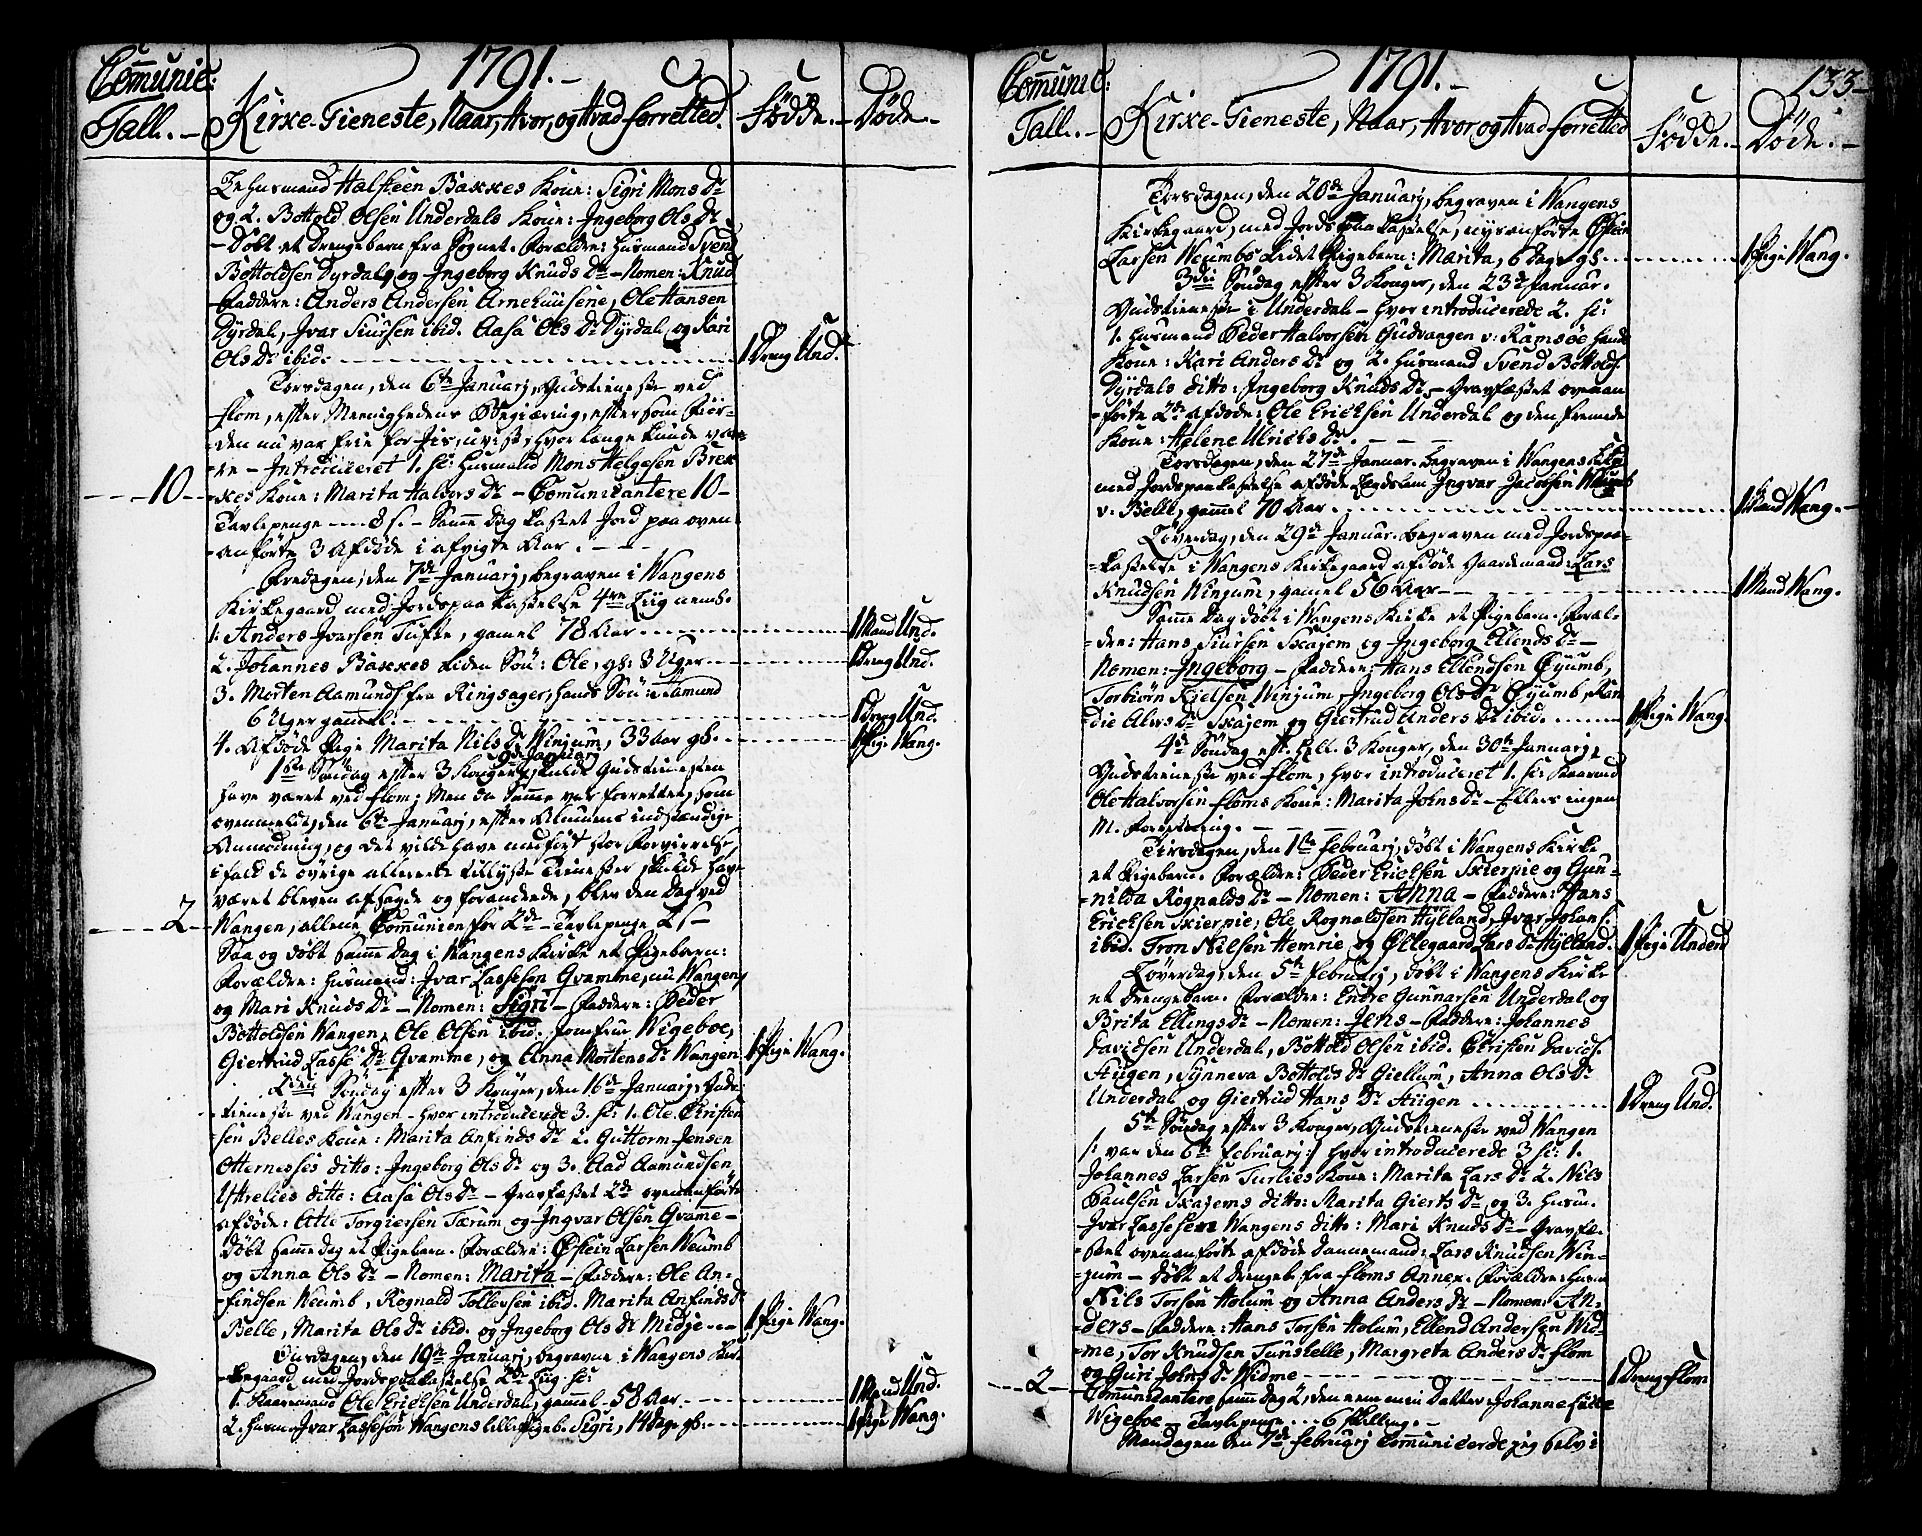 Comunic:
Tall.
1791.
Kirke-Tieneste, Naar, Hvor, og Hvad forretted.
Födde.
Döde.
Husmand Halsteen Bakkes Kone: Sigri Mons Dr
og 2. Bottold Olsen Underdals Kone: Ingeborg Ols Dr
Döbt et Drengebarn fra Sognet. Forældre: Husmand Svend
Bottoldsen Dyrdal og Ingeborg Knuds Dr – Nomen: Knud
Faddere: Anders Andersen Arnehuusene, Ole Hansen
Dyrdal, Ivar Siursen ibid. Aasa Ols Dr Dyrdal og Kari
Ols Dr ibid. 1 Dreng Und.
Torsdagen, den 6te Januarj, Gudstieneste ved
Flom, efter Meenighedens Begiæring, eftersom Fior-
den nu var frie for Jis, uvist, hvor længe kunde væ-
re – Introduceret 1. sc: Husmand Mons Helgesen Brek-
10 kes Kone: Marita Halvors Dr – Comunicantere 10 –
Tavlepenge 8 s. – Samme Dag kastet Jord paa oven-
anförte 3 Afdöde i afvigte Aar.
Fredagen, den 7de Januarj, begraven i Wangens
Kirkegaard med Jordspaakastelse 4re Liig neml.
1. Anders Iversen Tufte, gamel 78 Aar 1 Mand Und.
2. Johannes Bakkes liden Sön: Ole, gl: 3 Uger 1 Dreng Und.
3. Morten Aamunds. fra Ringsager, hands Sön: Aamund
6 Uger gamel. 1 Dreng Und.
4. Afdöde Pige Marita Nils Dr Winjum, 33 Aar gl. 1 Pige Wang.
9de Januarj
1ste Söndag efter 3 Konger skulde Gudstienesten
have været ved Flom; Men da Samme var forrettet, som
ovenmeldt, den 6te Januarj, efter Almuens indstændige
Anmodning, og det vilde have medfört stor Forvirrelse,
ifald de övrige allerede tillyste Tienester skulde hav-
været bleven afsagde og forandrede, blev den Dag ved
2 Wangen, allene Comunion for 2de – Tavlepenge 2 s –
Saa og döbt samme Dag i Wangens Kirke et Pigebarn:
Forældre: Husmand: Ivar Lassesen Gvamme, nu Wangen,
og Mari Knuds Dr – Nomen: Sigri – Faddere: Peder
Bottoldsen Wangen, Ole Olsen ibid. Jomfrue Wigeboe,
Giertrud Lasse Dr Gvamme, og Anna Mortens Dr Wangen 1 Pige Wang.
2den Söndag efter 3 Konger, den 16de Januarj, Guds-
tieneste ved Wangen – hvor introducerede 3. sc: 1. Ole Christen-
sen Belles Kone: Marita Anfinds Dr 2. Guttorm Jensen
Otternesses ditto: Ingeborg Ols Dr og 3. Aad Aamundsen
Ystrelies ditto: Aasa Ols Dr – Gravfæstet 2de ovenanförte
afdöde: Atle Torgiersen Tærum og Ingvar Olsen Gvame –
Döbt samme dag et Pigebarn. Forældre: Östein Larsen Weumb
og Anna Ols Dr – Nomen: Marita – Faddere: Ole An-
findsen Weumb, Rognald Tollevsen ibid. Marita Anfinds Dr
Belle, Marita Ols Dr ibid. og Ingeborg Ols Dr Midje 1 Pige Wang.
Onsdagen, den 19de Januarj, begravne i Wangens Kir-
kegaard med Jordspaakastelse 2de Liig sc:
1. Kaarmand Ole Ericksen Underdal, gammel 58 Aar 1 Mand Und.
2. Husm: Ivar Lassesön Wangens lille Pigeb. Sigri, 14 Dage gl. 1 Pige Wang.
Comunic:
Tall.
1791.
Kirke-Tieneste, Naar, Hvor og Hvad forretted
Födde.
Döde.
133
Torsdagen, den 20de Januarj, begraven i Wangens
Kirkegaard, med Jords Paakastelse, nysanförte Östein
Larsen Weumbs lidet Pigebarn: Marita, 6 dage gl. 1 Pige Wang.
3die Söndag efter 3 Konger, den 23de Januar.
Gudstieneste i Underdal – hvor introducerede 2. sc:
1. Husmand Peder Halvorsen Gudvangen v: Ramsöe hands
Kone: Kari Anders Dr og 2. Husmand Svend Bottolds.
Dyrdals ditto: Ingeborg Knuds Dr – Gravfæstet ovenan-
förte 2de afdöde: Ole Ericksen Underdal og den fremede
Kone: Helene Ulrichs Dr.
Torsdagen, den 27de Januar. begraven i Wangens Kirkeg.
med Jordspaakastelse afdöde Lægdslem Ingvar Jacobsen Weumb
v: Belle, gammel 70 Aar 1 Mand Wang.
Löverdag, den 29de Januar. begraven med Jordspaa-
kastelse i Wangens Kirkegaard afdöde Gaardemand: Lars
Knudsen Winjum, gamel 56 Aar 1 Mand Wang.
Samme Dag döbt i Wangens Kirke et Pigebarn. Foræl-
dre: Hans Siursen Skajem og Ingeborg Ellends Dr –
Nomen: Ingeborg – Faddere: Hans Ellendsen Öyumb,
Torbiörn Kielsen Winjum, Ingeborg Ols Dr Öyumb, Ran-
die Alvs Dr Skajem og Giertrud Anders Dr ibid. 1 Pige Wang.
4de Söndag eft. Hell. 3 Konger, den 30te Januarj,
Gudstieneste ved Flom, hvor introduceret 1. sc: Kaarmd
Ole Halvorsen Floms Kone: Marita Johns Dr – Ellers ingen
M. Forretning.
Tirsdagen, den 1ste Februarj, döbt i Wangens Kirke
et Pigebarn. Forældre: Peder Ericksen Skierpie og Gun-
nilda Rognalds Dr – Nomen: Anna – Faddere: Hans
Ericksen Skierpie, Ole Rognaldsen Hylland, Ivar Johans.
ibid. Tron Nilsen Hemrie og Öllegaard Lars Dr Hylland. 1 Pige Underd
Löverdag, den 5te Februarj, döbt i Wangens Kirke
et Drengebarn. Forældre: Endre Gunnarsen Underdal og
Brita Ellings Dr – Nomen: Jens – Faddere: Johannes
Davidsen Underdal, Bottold Olsen ibid. Christen Davids.
Stiigen, Synneva Bottolds Dr Giellum, Anna Ols Dr
Underdal og Giertrud Hans Dr Stiigen 1 Dreng Und.
5te Söndag efter 3 Konger, Gudstieneste ved Wangen
/: var den 6te Februarj:/ hvor introducerede 3 sc: 1.
Johannes Larsen Turlies Kone: Marita Lars Dr 2. Nils
Paulsen Skajems ditto: Marita Gierts Dr og 3. Husm.
Ivar Lassesens Wangens ditto: Mari Knuds Dr – Gravfæ-
stet ovenanförte afdöde Dannemand: Lars Knudsen Win-
jum – Döbt et Drengeb. fra Floms Annex. Forældre: Husm
Nils Torsen Holum og Anna Anders Dr – Nomen: An-
ders – Faddere: Hans Torsen Holum, Ellend Andersen Wid-
me, Tor Knudsen Tunshelle, Margreta Anders Dr Flom
og Guri Johns Dr Widme 1 Dreng Flom
2 Comunicantere samme Dag 2, den eene min Datter: Johanne
Wigeboe – Tavlepenge 6 Skilling. –
Mandagen den 7de Februarj Communicerede jeg selv i